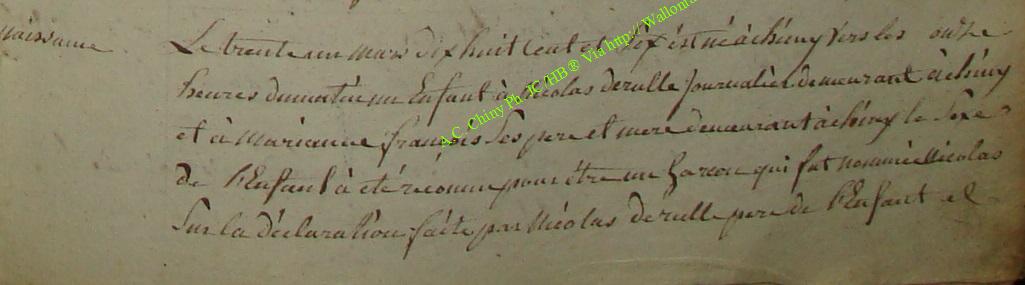 naissance
Le trente un mars dix huit cent et dix est né à chiny vers les onze
heures du matin un Enfant à Nicolas derulle Journalier demeurant à chiny
et à marianne françois ses pere et mere demeurant à chiny le Sexe
de l'Enfant à eté reconnu pour être un Garcon qui fut nommé Nicolas
Sur la déclaration faite par Nicolas derulle pere de l'Enfant et
A.C. Chiny Ph. JC /HB® Via http://Wallonia